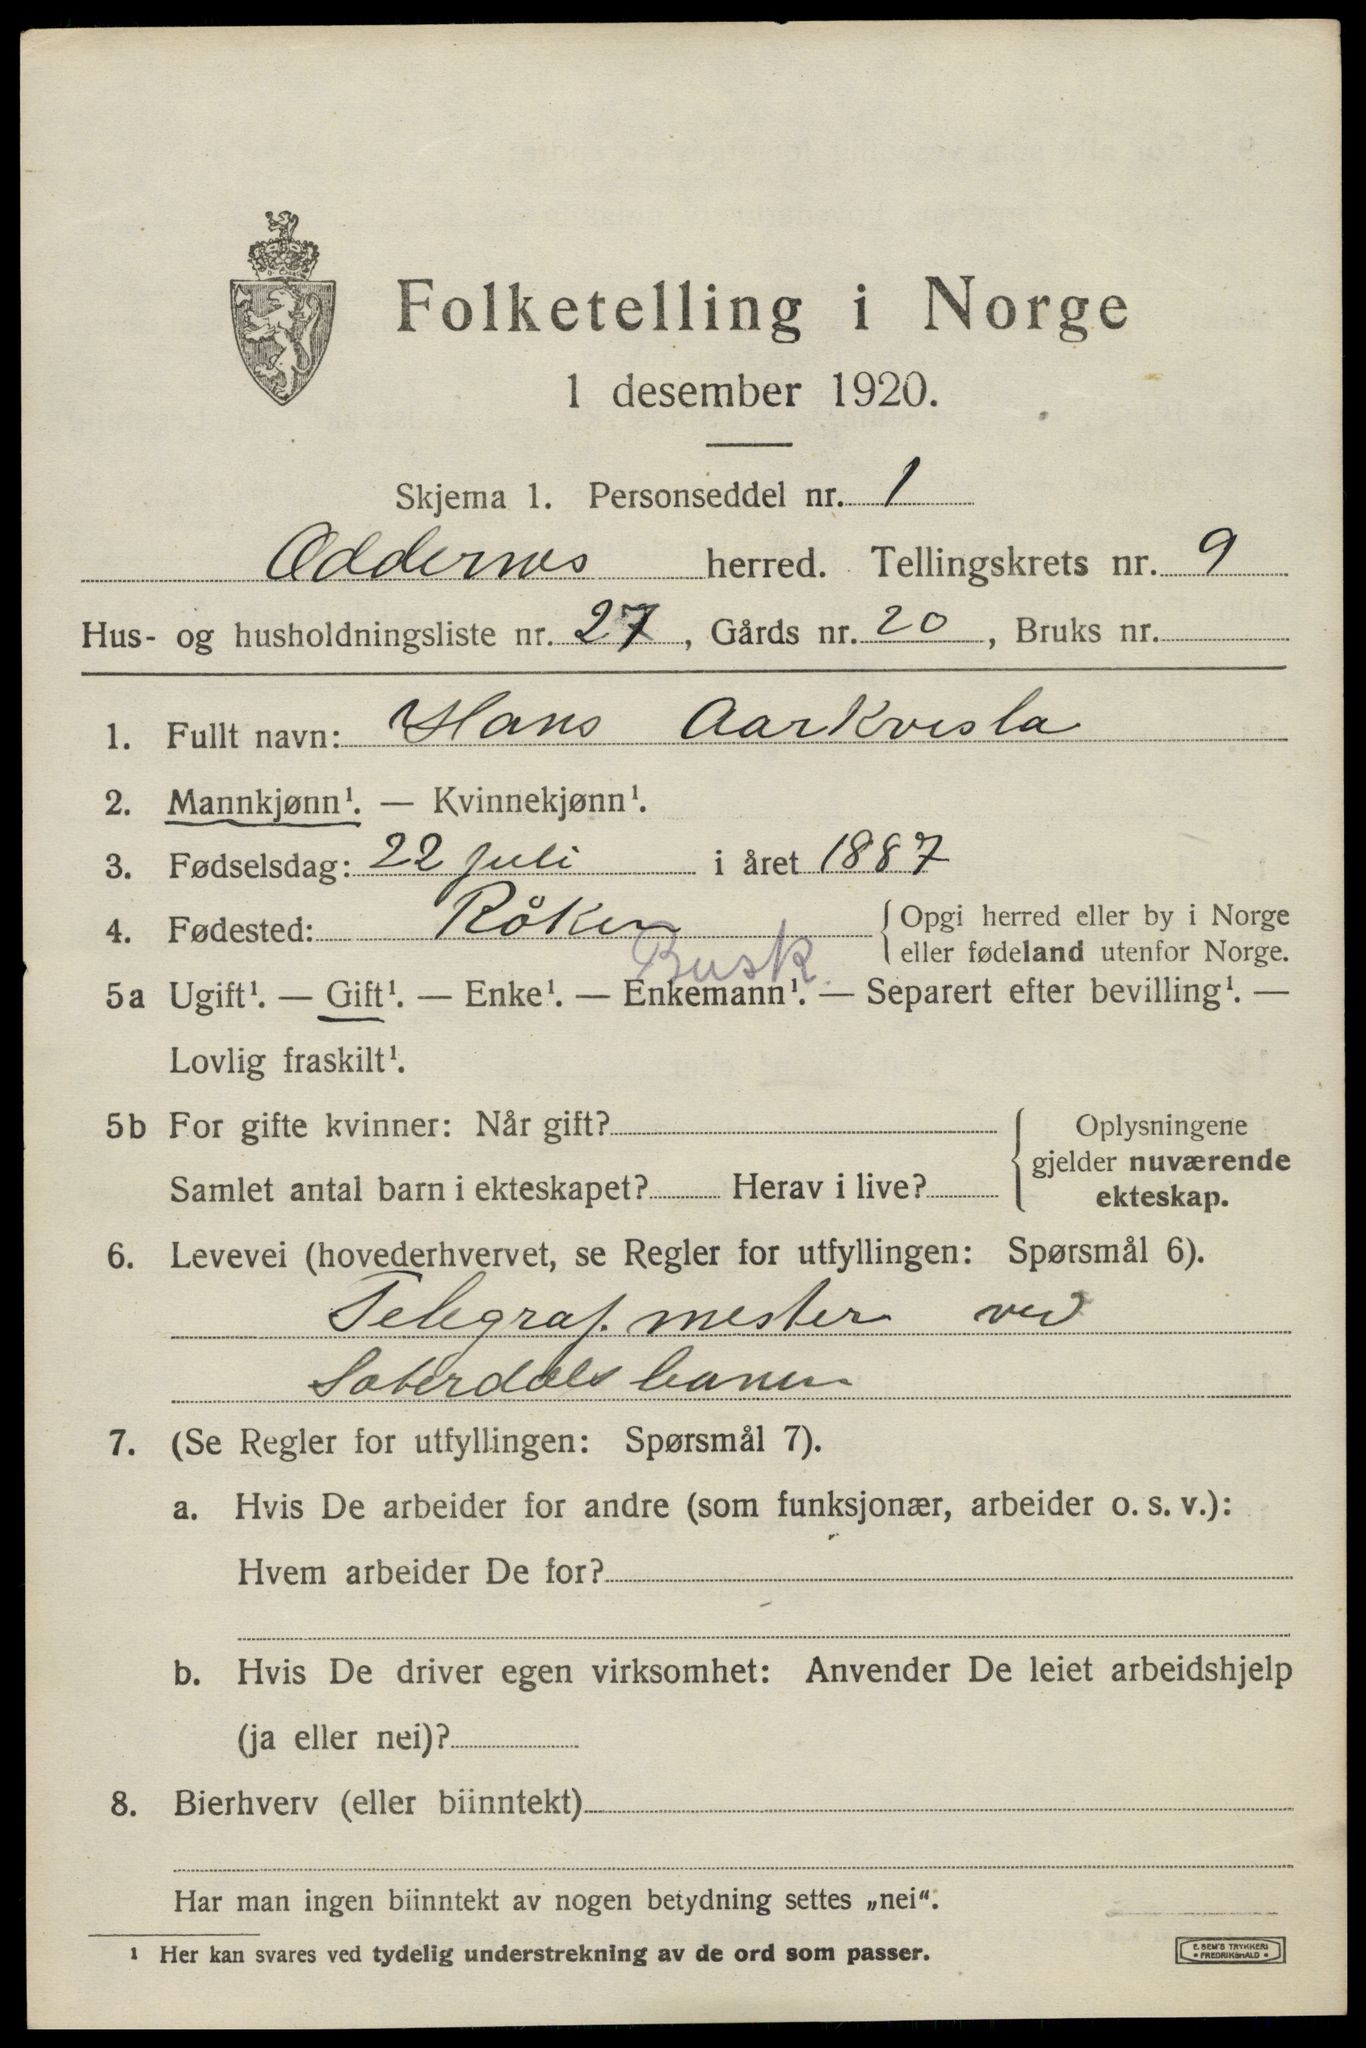 Folketelling i Norge
1 desember 1920.
Skjema 1. Personseddel nr. 1
Oddernes herred. Tellingskrets nr. 9
Hus- og husholdningsliste nr. 27, Gårds nr. 20, Bruks nr.
1. Fullt navn: Hans Aarkvisla
2. Mannkjønn¹. — Kvinnekjønn¹.
3. Fødselsdag: 22 juli i året 1887
4. Fødested: Röken { Opgi herred eller by i Norge
eller fødeland utenfor Norge.
Busk.
5a Ugift¹. — Gift¹. — Enke¹. — Enkemann¹. — Separert efter bevilling¹. —
Lovlig fraskilt¹.
5b For gifte kvinner: Når gift? { Oplysningene
gjelder nuværende
Samlet antal barn i ekteskapet? Herav i live? ekteskap.
6. Levevei (hovederhvervet, se Regler for utfyllingen: Spørsmål 6).
Telegrafmester ved
Seterdalsbanen
7. (Se Regler for utfyllingen: Spørsmål 7).
a. Hvis De arbeider for andre (som funksjonær, arbeider o. s. v.):
Hvem arbeider De for?
b. Hvis De driver egen virksomhet: Anvender De leiet arbeidshjelp
(ja eller nei)?
8. Bierhverv (eller biinntekt)
Har man ingen biinntekt av nogen betydning settes „nei“.
¹ Her kan svares ved tydelig understrekning av de ord som passer.
E. SEM'S TRYKKERI
• FREDRIKSHALD •